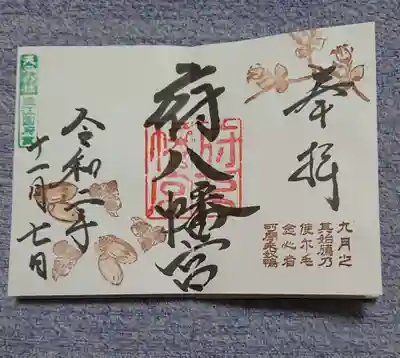 奉拝
九月之
其始鴈乃
使尓毛
念心者
所聞来奴鴨
府八幡宮
府八
幡宮
令和二年
十一月七日